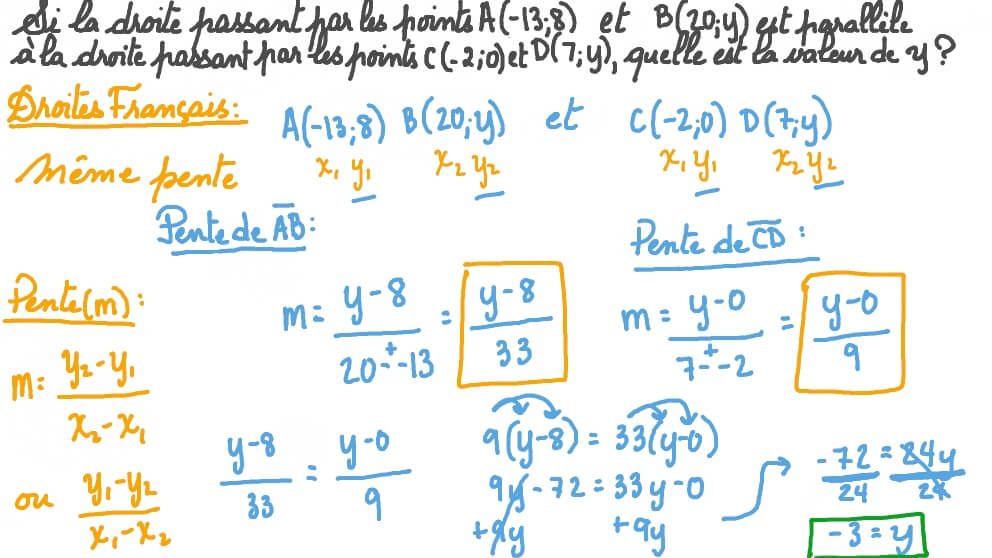 Si la droite passant par les points A(-13;8) et B(20;y) est parallèle
à la droite passant par les points C(-2;0) et D(7;y), quelle est la valeur de y?
Droites Français:
A(-13;8) B(20;y) et C(-2;0) D(7;y)
x₁ y₁ x₂ y₂ x₁ y₁ x₂ y₂
Même pente
Pente de AB:
Pente de CD:
Pente(m):
m = (y-8)/(20 - -13) = (y-8)/33
m = (y-0)/(7 - -2) = (y-0)/9
m: (y₂-y₁)/(x₂-x₁)
ou (y₁-y₂)/(x₁-x₂)
(y-8)/33 = (y-0)/9
9(y-8) = 33(y-0)
9y-72 = 33y-0
+9y +9y
-72/24 = 24y/24
-3 = y